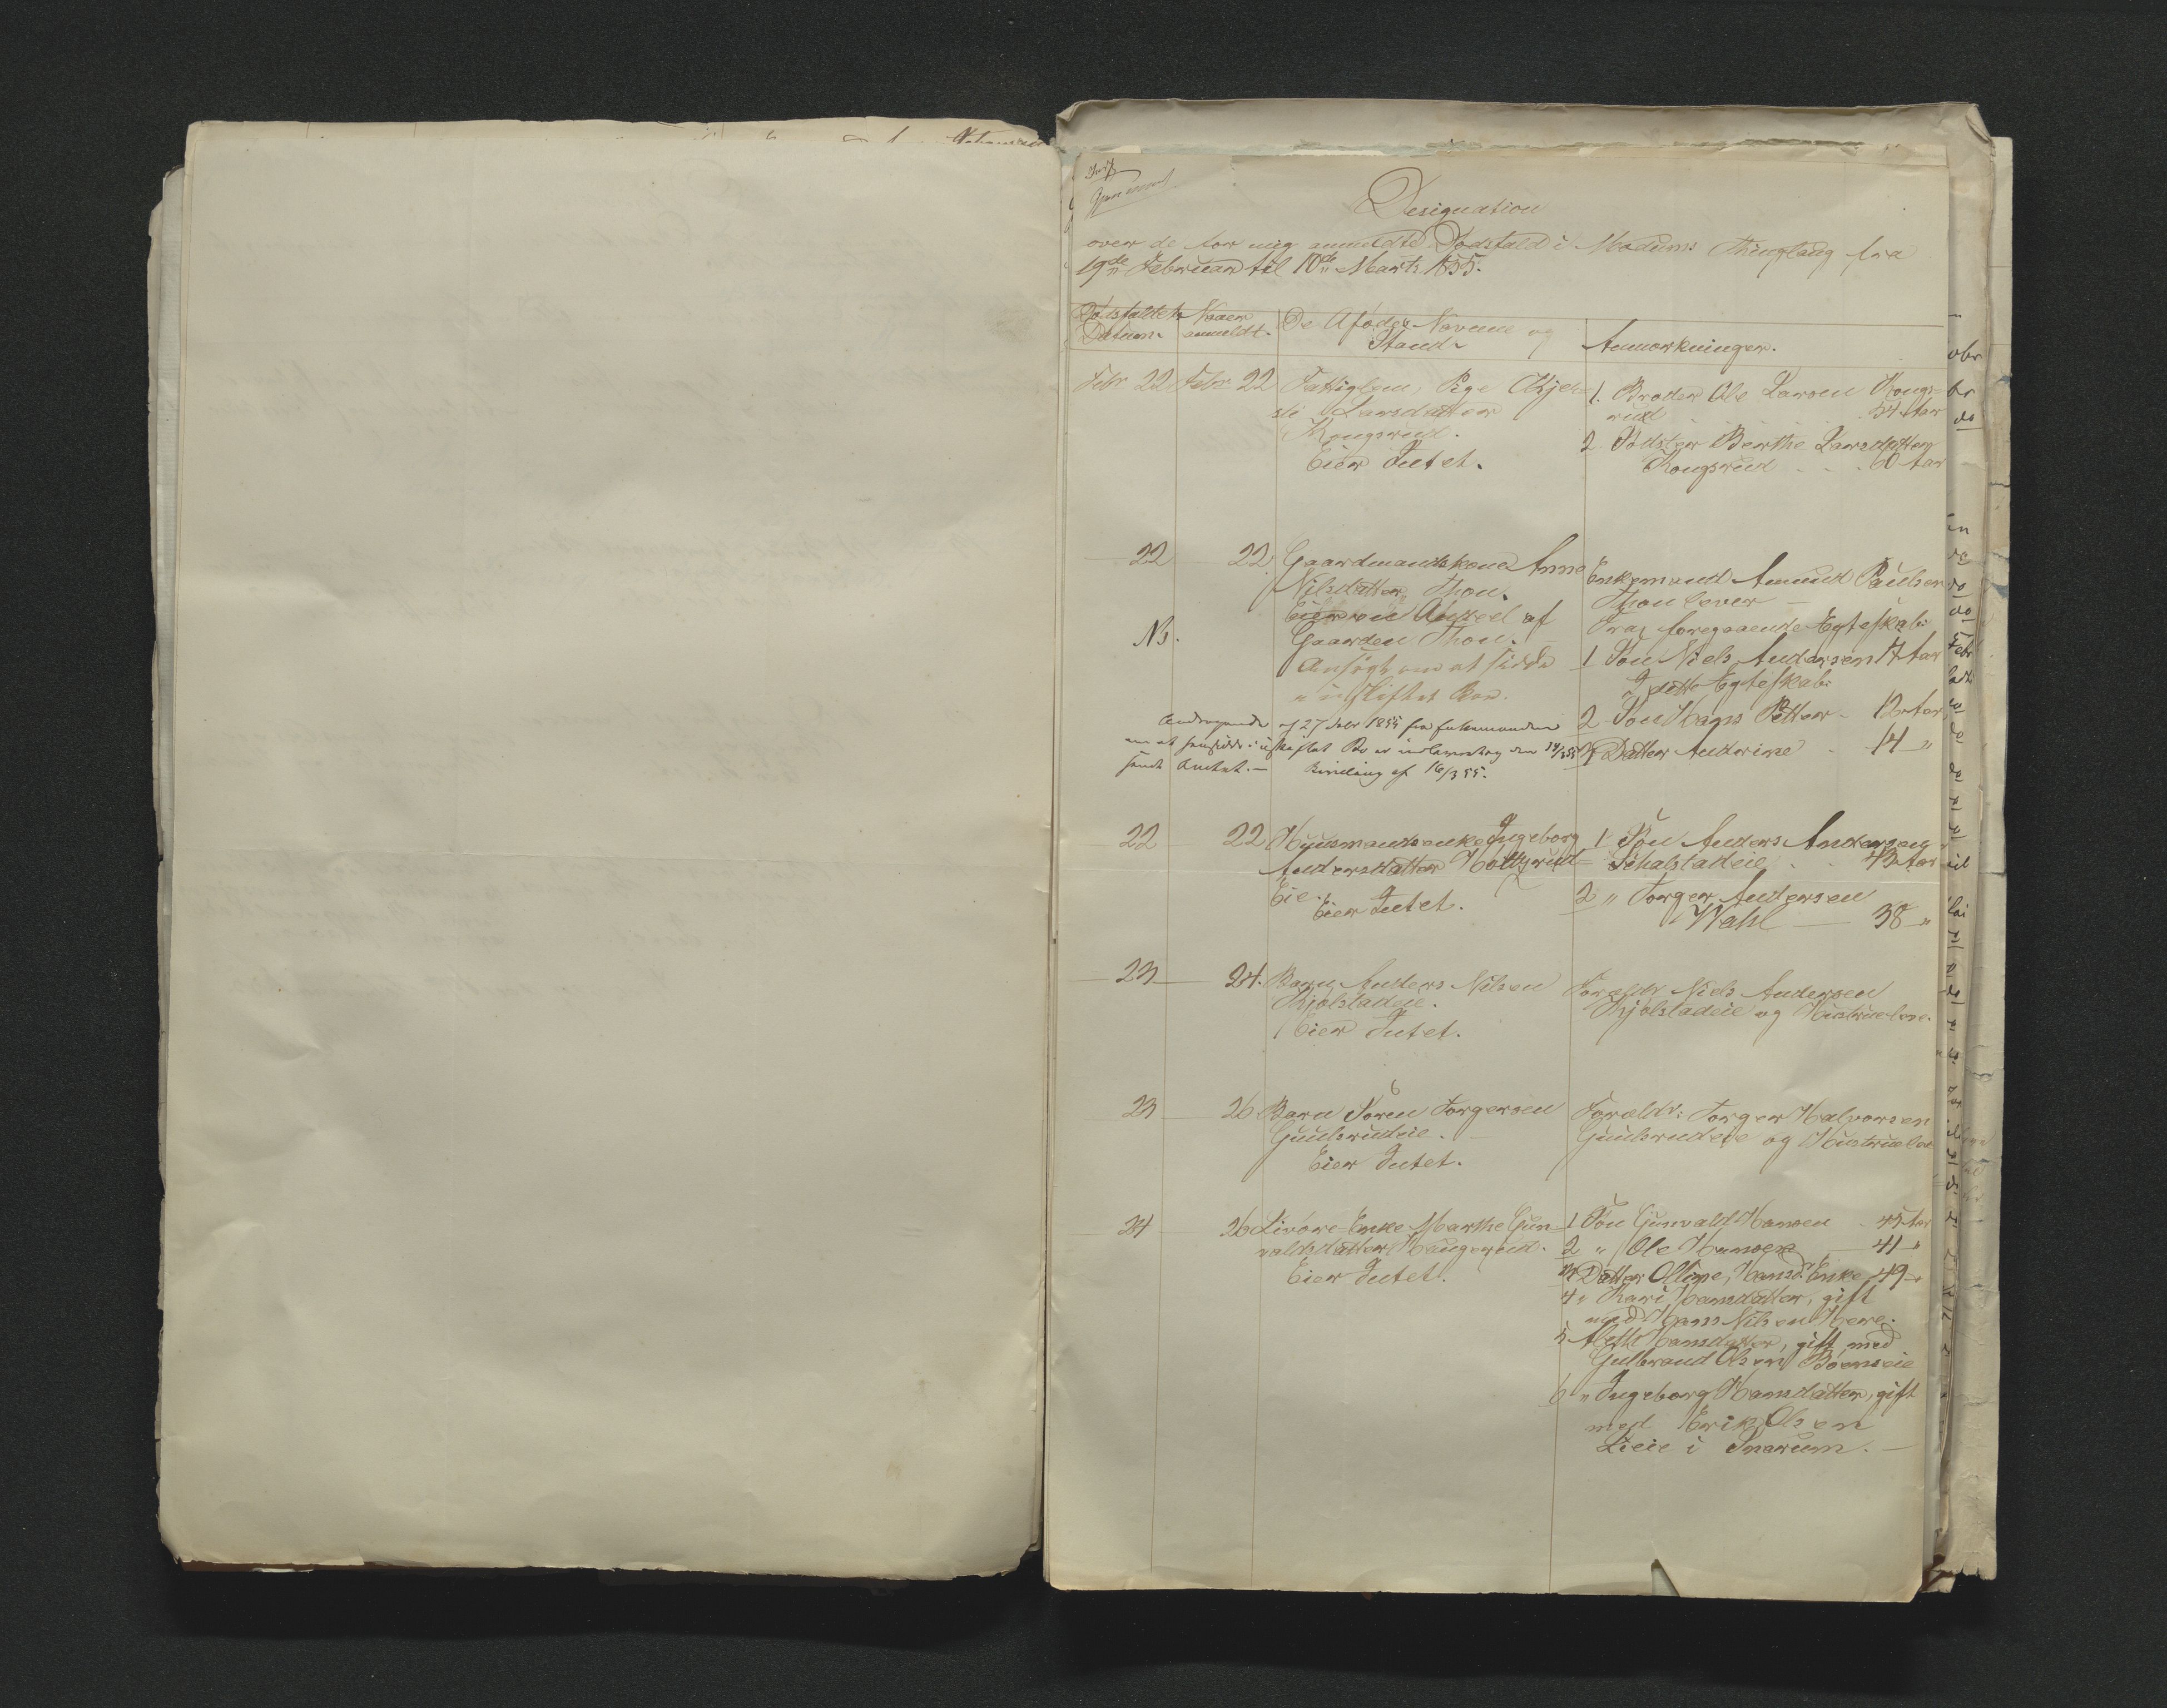 Designation
over de for mig anmeldte Dødsfald i Modums Thinglaug fra
19de Februar til 10de Marts 1855.
Dødsfaldets Datum.
Naaer anmeldt.
De Afødes Navne og Stand
Anmærkninger.
Febr 22 Febr 22 Fattiglem, Pige Chjer-
sti Larsdatter
Kongsrud.
Eier Intet.
1. Broder Ole Larsen Kongs-
rud 54 Aar
2 Södster Berthe Larsdatter
Kongsrud 60 Aar
22 22 Gaardmandskone Anne
Nilsdatter Thon.
Eier en Andeel af
Gaarden Thon.
Ansøgt om at sidde
i uskiftet Boe.
Nb.
Andragende af 27 Febr 1855 fra Enkemanden
om at hensidde i uskiftet Bo er
sendt Amtet. — Bevilling af 16/3 55.
Enkemand Amund Paulsen
Thon lever —
Fra foregaaende Egteskab:
1 Søn Niels Andersen 17 Aar
I dette Egteskab:
2 Søn Hans Petter 12 Aar
3 Datter Andrine 14 "
22 22 Huusmandsenke Ingeborg
Andersdatter
Eie.
Eier Intet.
1 Søn Anders Andersen
43 Aar
2 " Torger Andersen
Wahl — 38 "
23 24. Barn Anders Nilsen
Kjølstadeie.
Eier Intet.
Foreldr Niels Andersen
Kjølstadeie og Hustrue leve.
23 26 Barn Søren Torgersen
Guulsrudeie.
Eier Intet.
Forældr: Torger Halvorsen
Guulsrudeie og Hustrue leve
24 26 Livøre-Enke Marthe Gun-
valdsdatter Haugerud.
Eier Intet.
1 Søn Gunvald Hansen 45 Aar
2 " Ole Hansen 41 "
3 Datter Olline, Hansd. Enke 49 "
4 " Kari Hansdatter, gift
med Hans Nilsen Here.
5 Aleth Hansdatter, gift med
Gulbrand Olsen Bøenseie
6 " Ingeborg Hansdatter, gift
med Erik Olsen
Lieie i Snarum. —